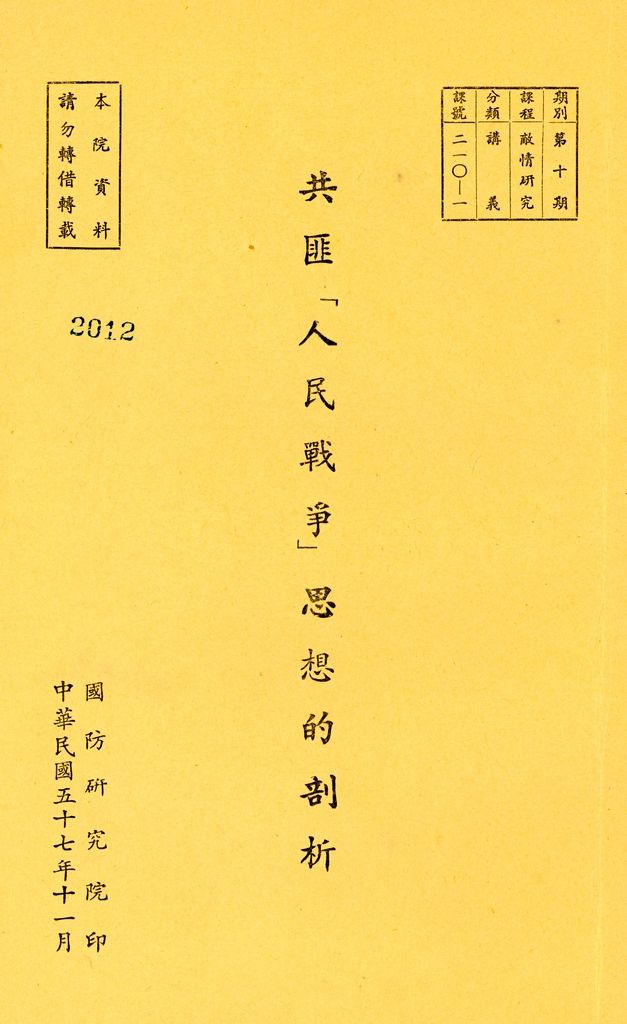 期別 第十期
課程 敵情研究
分類 講義
課號 二一〇—一
共匪「人民戰爭」思想的剖析
本院資料
請勿轉借轉載
2012
國防研究院印
中華民國五十七年十一月